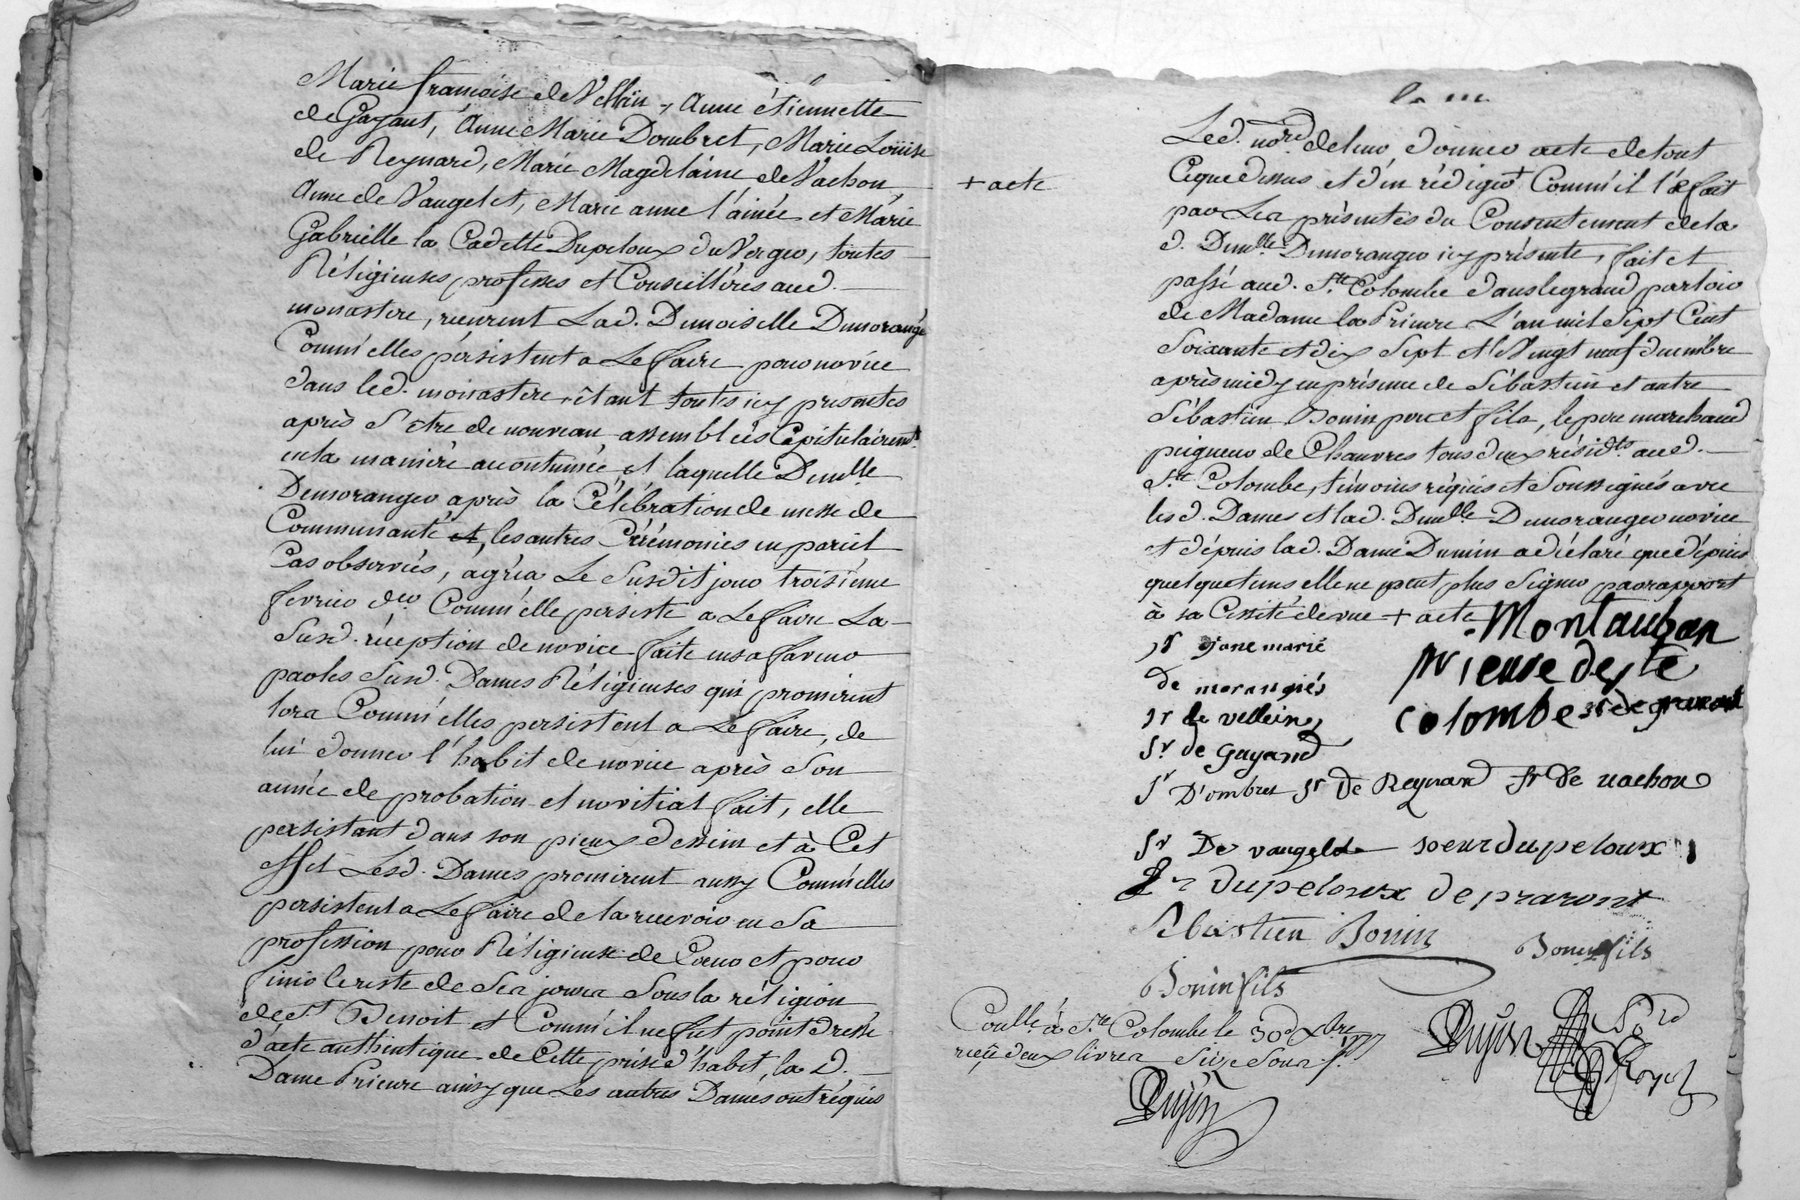 Marie françoise de Vellein, Anne étiennette
de Gayant, Anne Marie Dombret, Marie Louise
de Reynard, Marie Magdelaine de Vachon,
Anne de Vaugelet, Marie anne l'ainée et Marie
Gabrielle la Cadette Dupeloux du Verger, toutes
Réligieuses professes et Conseillères aud.
monastere, reçurent Lad. Demoiselle Demorangé
Comm'elles persistent a Le faire pour novice
dans led. monastere, étant toutes icy presentes
après s'etre de nouveau assemblées Capitulairemt.
en la manière accoutumée et laquelle Demlle.
Demoranger après la Célébration de messe de
Communauté et, les autres Cérémonies en pareil
Cas observées, agréa Le Susdit jour troisième
fevrier der Comm'elle persiste a Le faire La
Susd. réception de novice faite en sa faveur
par les Susd. Dames Réligieuses qui promirent
lors Comm'elles persistent a Le faire, de
lui donner l'habit de novice après Son
année de probation et novitiat fait, elle
persistant dans son pieux dessein et à Cet
effet Lesd. Dames promirent aussy Comm'elles
persistent a Le faire de la recevoir en Sa
profession pour Réligieuse de Cœur et pour
finir le reste de Ses jours Sous la réligion
de St. Benoit et Comm'il ne fut point dressé
d'acte authentique de Cette prise d'habit, la d.
Dame Prieure ainsy que Les autres Dames ont réquis
Led. nore. de leur donner acte de tout
+ acte
Ceque dessus et d'en rédiger+ Comm'il l'a fait
par Les présentes du Consentement de la
d. Demlle. Demoranger icy présente, fait et
passé aud. Ste. Colombe dans le grand parloir
de Madame la Prieure L'an mil Sept Cent
Soixante et dix Sept et le Vingt neuf decembre
après midy en présence de Sébastien et autre
Sébastien Bonin pere et fils, le pere marchand
peigneur de Chanvres tous deux résidts. aud.
Ste. Colombe, témoins réquis et Soussignés avec
lesd. Dames et lad. Demlle. Demoranger novice
et dépuis lad. Dame Dumin a déclaré que dépuis
quelque tems elle ne peut plus Signer par rapport
à sa Cessité de vue + acte Montauban
prieure de ste
colombe
sr jane marie
de morangiés
sr de vellein
Sr. de Gayand
Sr D'ombret Sr De Reynard Sr De vachon
Sr De vaugelet soeur dupeloux
Sr dupeloux de praront
Sebastien Bonin
Bonin fils
Bonin fils
Coullé à Ste. Colombe le 30 Xbre 1777
reçu deux livres Size Sous